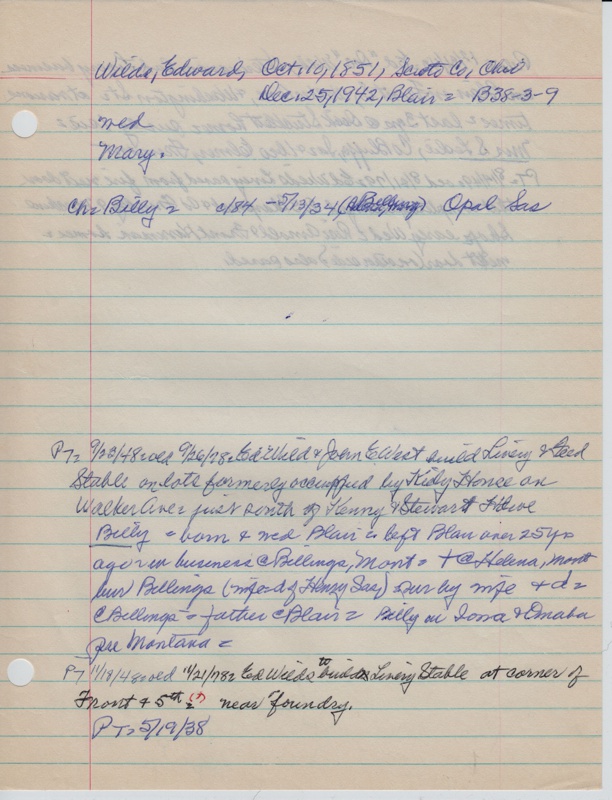 Wilde, Edward, Oct. 10, 1851, Scioto Co, Ohio
Dec. 25, 1942, Blair = B38-3-9
med
Mary.
Ch = Billy = c/84 - 5/13/34 Opal Sas
PT = 9/23/48 = old 9/26/78 = Ed Wild & John E West build Livery & Feed
Stable on lots formerly occupied by Kidy House on
Walker Ave = just south of Henry & Stewart Hdwe
Billy = born & med Blair = left Blair over 25 yrs
ago = in business @ Billings, Mont = + @ Helena, mont
bur Billings (wife = d of Henry Sas) sur by wife + d =
@ Billings = father @ Blair = Billy in Iowa & Omaha
pre Montana =
PT 11/18/48 = old 11/21/78 = Ed Wilds to build Livery Stable at corner of
Front & 5th = (?) near foundry.
PT = 5/19/38